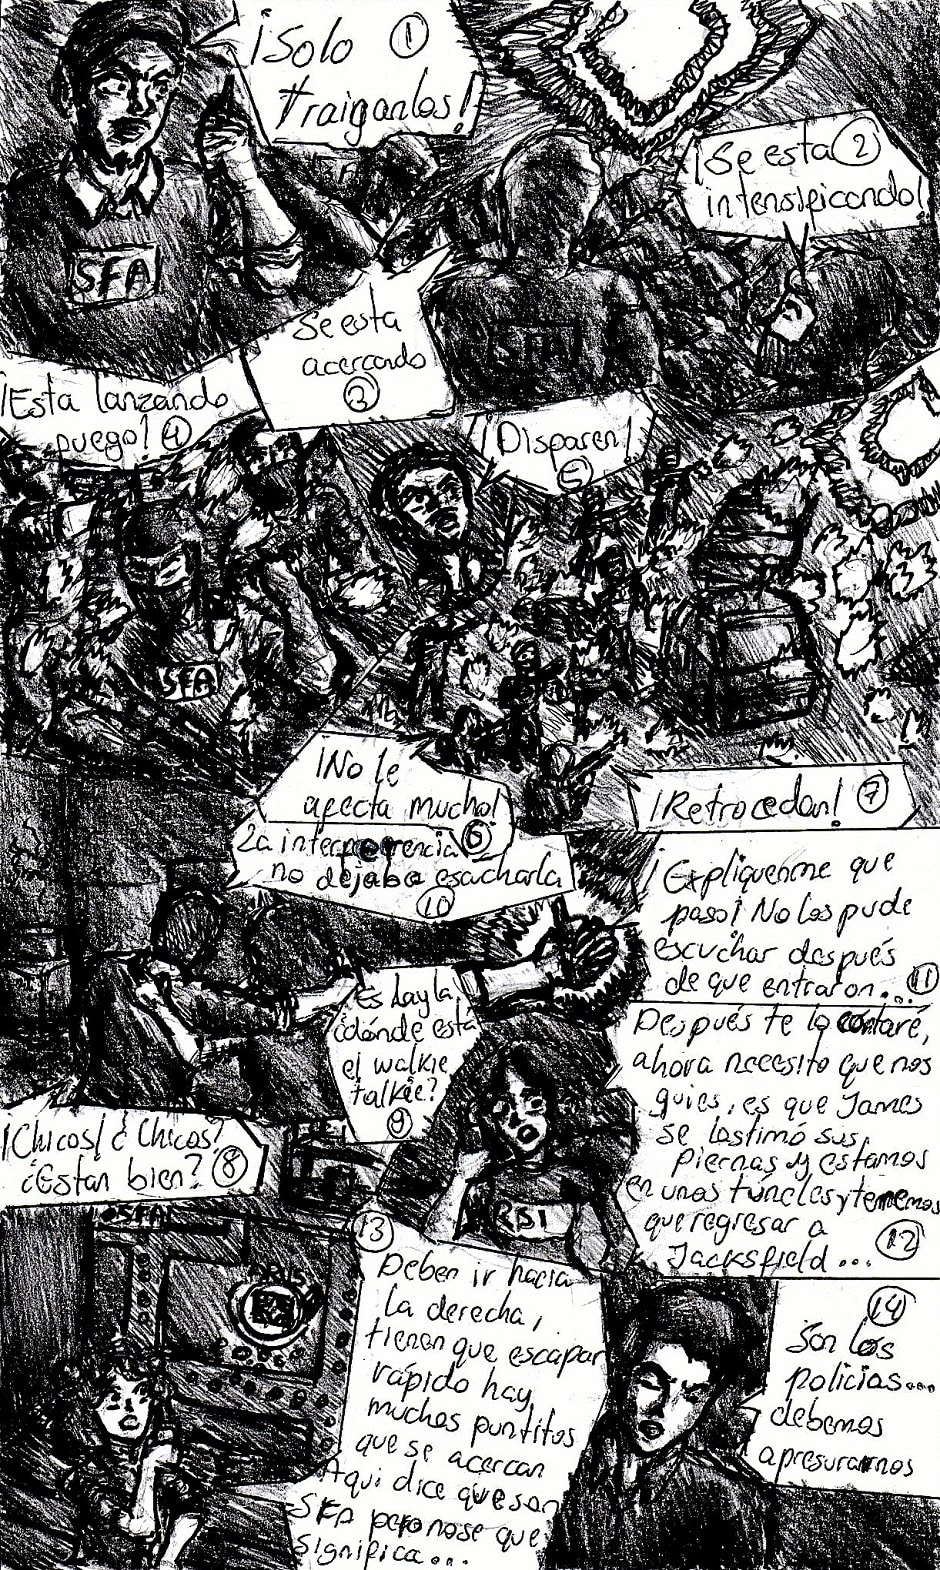 ¡Solo 1
traiganlos!
¡Se esta 2
intensificando!
SFA
SFA
Se esta
acercando
3
¡Esta lanzando
fuego! 4
¡Disparen!
5
SFA
¡No le
afecta mucho!
6
¡Retrocedan! 7
¡Chicos! ¿Chicos?
¿Estan bien? 8
Es Layla,
¿dónde está
el walkie
talkie?
9
La interferencia
no dejaba escucharla
10
¡Expliquenme que
paso! No los pude
escuchar después
de que entraron... 11
Después te lo contaré,
ahora necesito que nos
guies, es que James
se lastimó sus
piernas y estamos
en unos túneles y tenemos
que regresar a
Jacksfield... 12
RBI
SFA
13
Deben ir hacia
la derecha,
tienen que escapar
rápido hay
muchos puntitos
que se acercan
Aqui dice que son
SFA pero nose que
significa...
14
Son los
policias...
debemos
apresurarnos